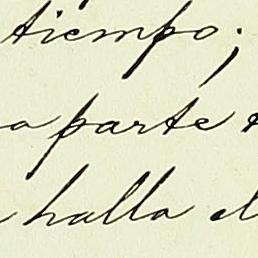 tiempo;
a parte
halla el